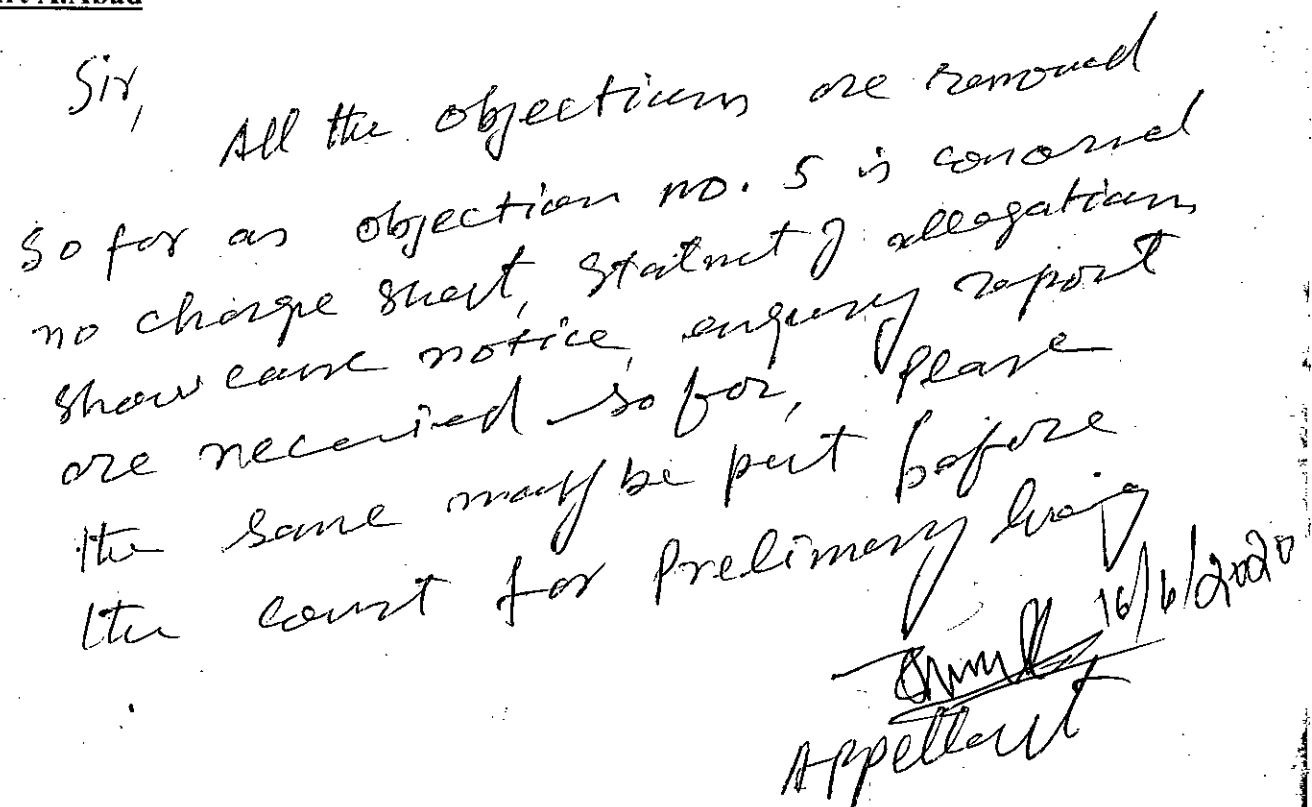 A.Abad
Sir,
All the objections are removed
so far as objection no. 5 is concerned
no charge sheet, statment of allegations
show cause notice, enquiry report
are received so far, please
the same may be put before
the court for Prelimary hearing
16/6/2020
Appellant